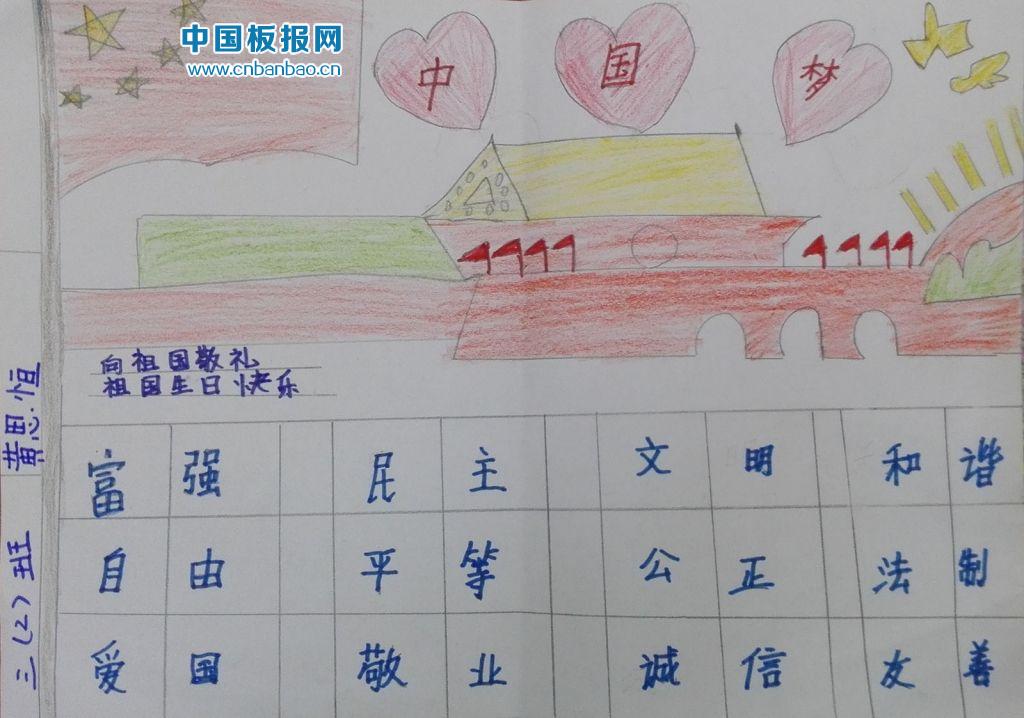 中国板报网
www.cnbanbao.cn
中 国 梦
向祖国敬礼
祖国生日快乐
富 强 民 主 文 明 和 谐
自 由 平 等 公 正 法 制
爱 国 敬 业 诚 信 友 善
三(2)班 黄思恒